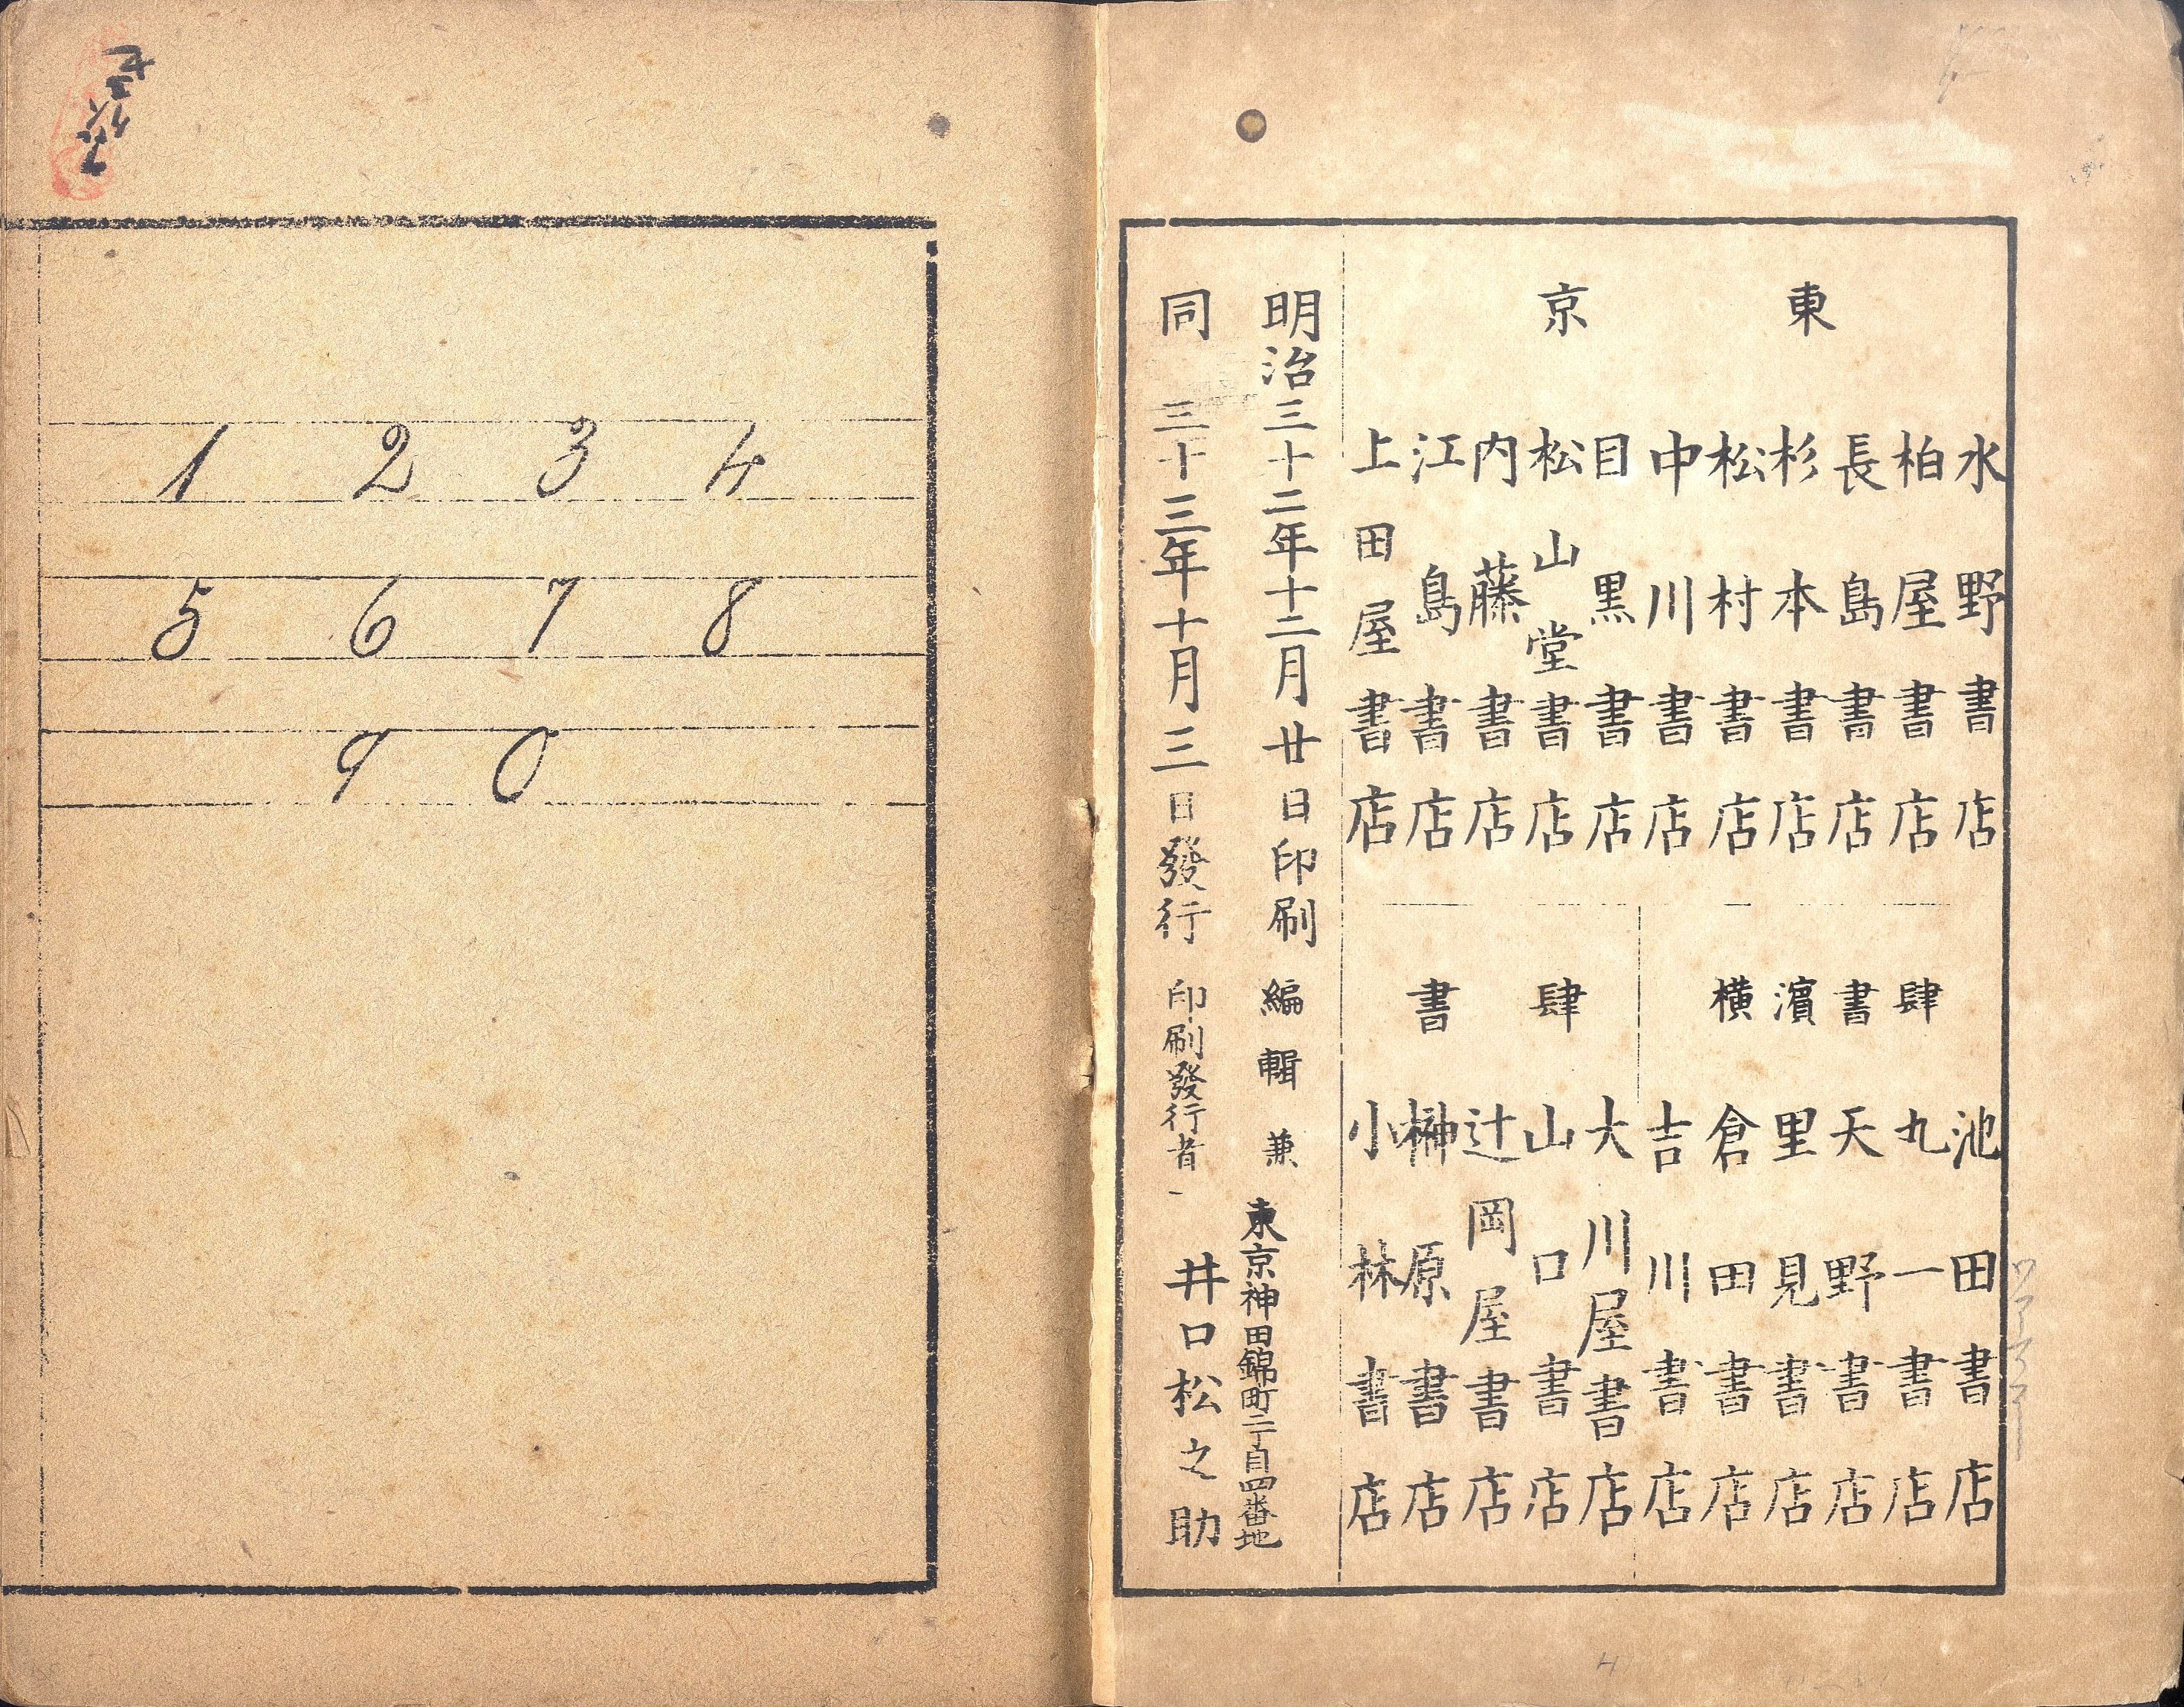 東京
水野書店
柏屋書店
長島書店
杉本書店
松村書店
中川書店
目黒書店
松山堂書店
内藤書店
江島書店
上田屋書店
横濱書肆
池田書店
丸一書店
天野書店
里見書店
倉田書店
吉川書店
書肆
大川屋書店
山口書店
辻岡屋書店
榊原書店
小林書店
明治三十二年十二月廿日印刷
同 三十三年十月三日發行
編輯兼
印刷發行者
東京神田錦町二丁目四番地
井口松之助
1 2 3 4
5 6 7 8
9 0